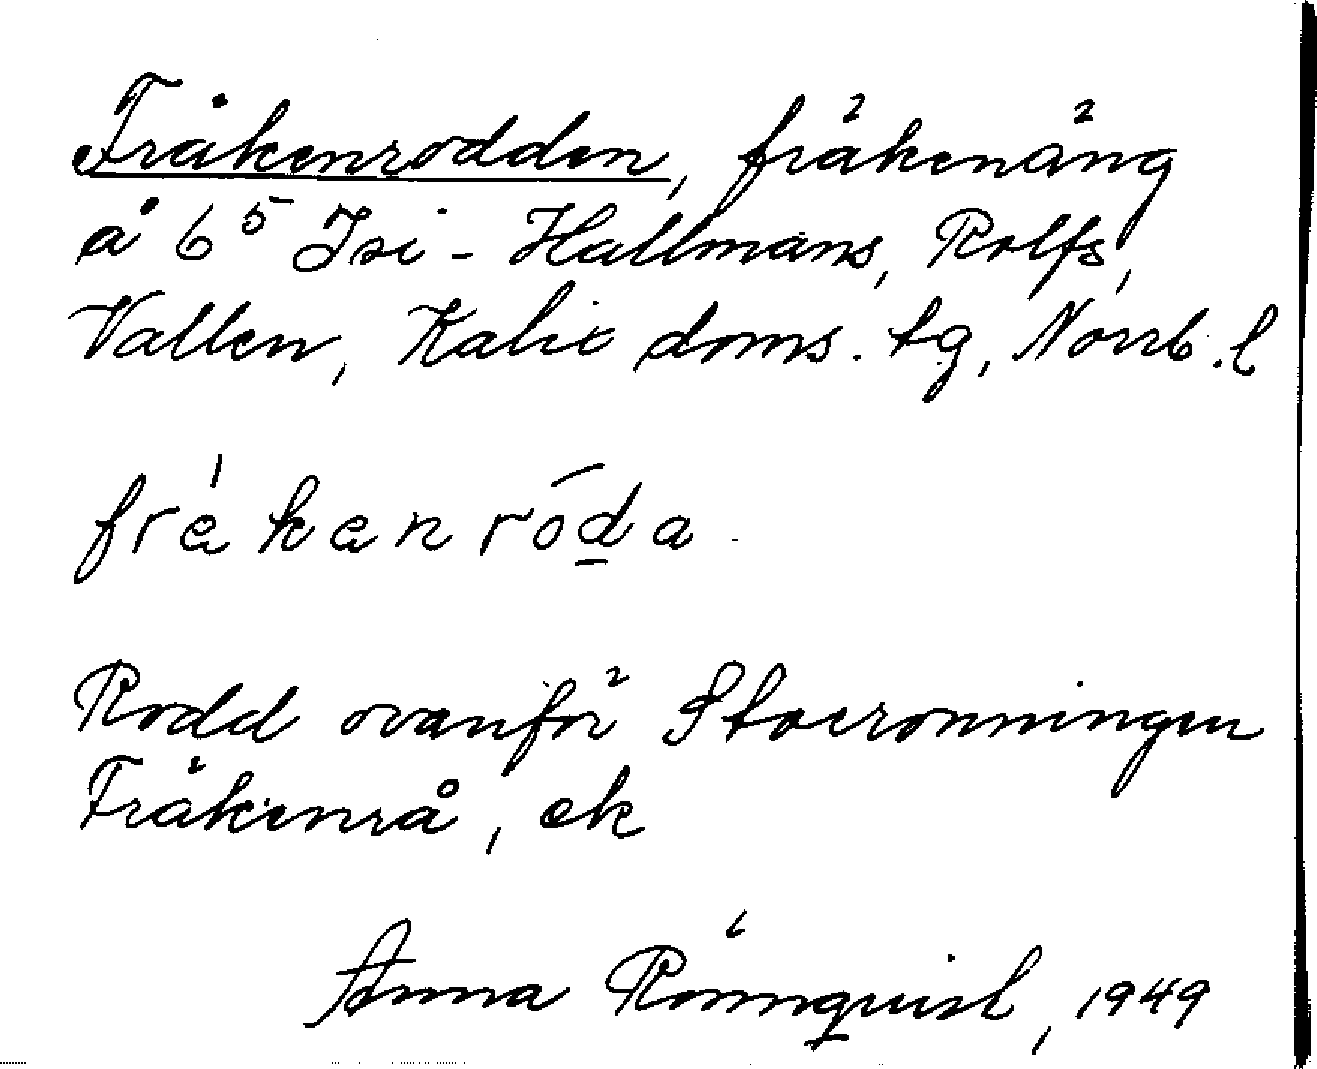 Fräkenrodden, fräkenäng
å 6⁵ Isi - Hallmans, Rolfs,
Vallen, Kalix doms. tg, Norrb. l
fräkenróda
Rodd ovanför Storrönningen
Fräkenrå, ek
Anna Rönnquist, 1949